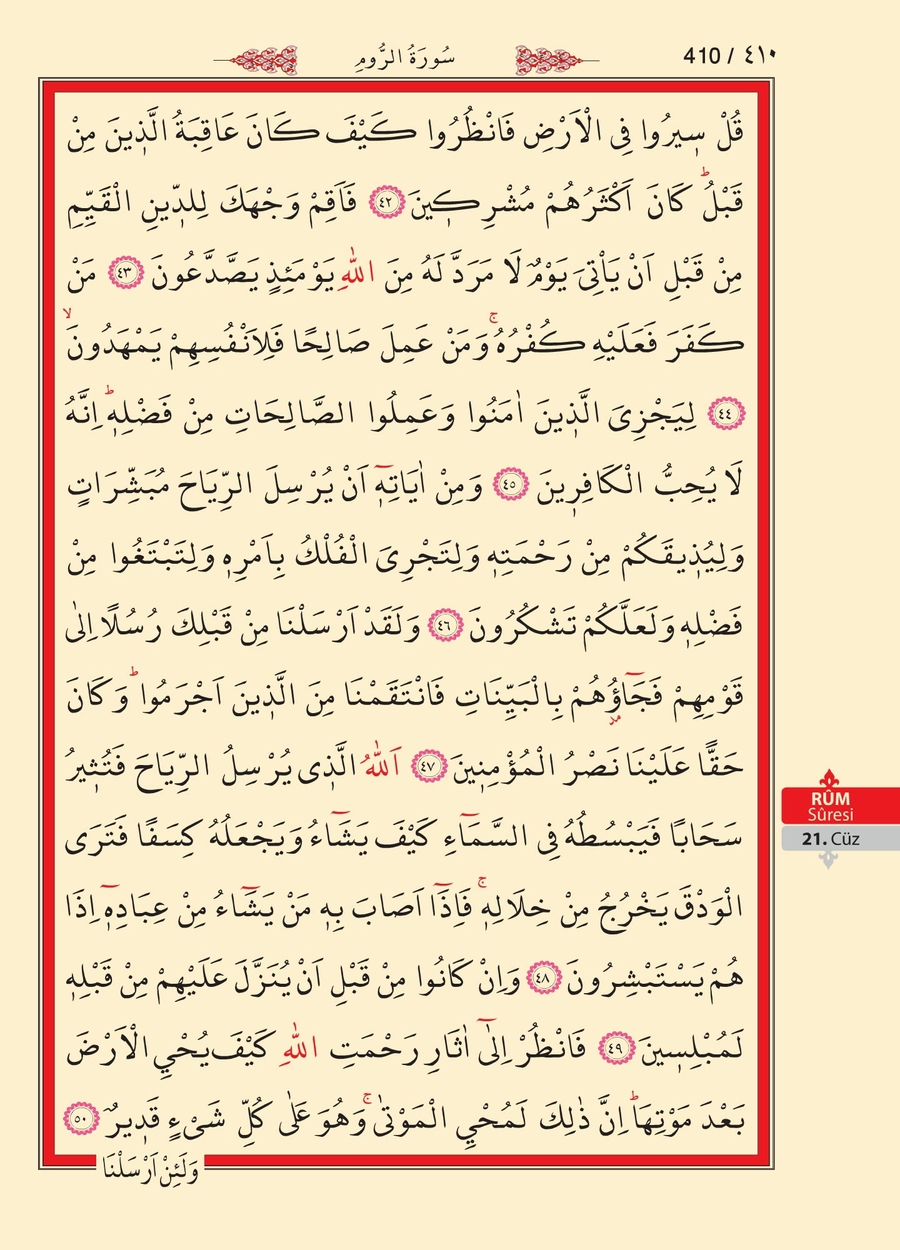 سُورَةُ الرُّومِ
410 / ٤١٠
قُلْ سٖيرُوا فِى الْاَرْضِ فَانْظُرُوا كَيْفَ كَانَ عَاقِبَةُ الَّذٖينَ مِنْ
قَبْلُؕ كَانَ اَكْثَرُهُمْ مُشْرِكٖينَ ﴿٤٢﴾ فَاَقِمْ وَجْهَكَ لِلدّٖينِ الْقَيِّمِ
مِنْ قَبْلِ اَنْ يَاْتِىَ يَوْمٌ لَا مَرَدَّ لَهُ مِنَ اللّٰهِ يَوْمَئِذٍ يَصَّدَّعُونَ ﴿٤٣﴾ مَنْ
كَفَرَ فَعَلَيْهِ كُفْرُهُۚ وَمَنْ عَمِلَ صَالِحًا فَلِاَنْفُسِهِمْ يَمْهَدُونَۙ
﴿٤٤﴾ لِيَجْزِىَ الَّذٖينَ اٰمَنُوا وَعَمِلُوا الصَّالِحَاتِ مِنْ فَضْلِهٖؕ اِنَّهُ
لَا يُحِبُّ الْكَافِرٖينَ ﴿٤٥﴾ وَمِنْ اٰيَاتِهٖٓ اَنْ يُرْسِلَ الرِّيَاحَ مُبَشِّرَاتٍ
وَلِيُذٖيقَكُمْ مِنْ رَحْمَتِهٖ وَلِتَجْرِىَ الْفُلْكُ بِاَمْرِهٖ وَلِتَبْتَغُوا مِنْ
فَضْلِهٖ وَلَعَلَّكُمْ تَشْكُرُونَ ﴿٤٦﴾ وَلَقَدْ اَرْسَلْنَا مِنْ قَبْلِكَ رُسُلًا اِلٰى
قَوْمِهِمْ فَجَٓاؤُهُمْ بِالْبَيِّنَاتِ فَانْتَقَمْنَا مِنَ الَّذٖينَ اَجْرَمُواؕ وَكَانَ
حَقًّا عَلَيْنَا نَصْرُ الْمُؤْمِنٖينَ ﴿٤٧﴾ اَللّٰهُ الَّذٖى يُرْسِلُ الرِّيَاحَ فَتُثٖيرُ
سَحَابًا فَيَبْسُطُهُ فِى السَّمَٓاءِ كَيْفَ يَشَٓاءُ وَيَجْعَلُهُ كِسَفًا فَتَرَى
الْوَدْقَ يَخْرُجُ مِنْ خِلَالِهٖۚ فَاِذَٓا اَصَابَ بِهٖ مَنْ يَشَٓاءُ مِنْ عِبَادِهٖٓ اِذَا
هُمْ يَسْتَبْشِرُونَ ﴿٤٨﴾ وَاِنْ كَانُوا مِنْ قَبْلِ اَنْ يُنَزَّلَ عَلَيْهِمْ مِنْ قَبْلِهٖ
لَمُبْلِسٖينَ ﴿٤٩﴾ فَانْظُرْ اِلٰٓى اٰثَارِ رَحْمَتِ اللّٰهِ كَيْفَ يُحْيِ الْاَرْضَ
بَعْدَ مَوْتِهَاؕ اِنَّ ذٰلِكَ لَمُحْيِ الْمَوْتٰىۚ وَهُوَ عَلٰى كُلِّ شَىْءٍ قَدٖيرٌ ﴿٥٠﴾
وَلَئِنْ اَرْسَلْنَا
RÛM
Sûresi
21. Cüz